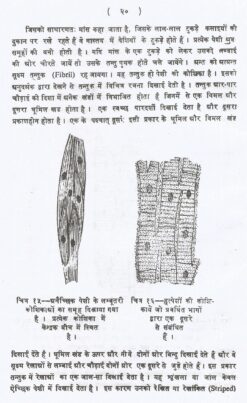 ( २० )
जिसको साधारणतः मांस कहा जाता है, जिसके लाल-लाल टुकड़े कसाइयों की
दुकान पर रखे रहते हैं वे वास्तव में पेशियों के टुकड़े होते हैं। प्रत्येक पेशी सूत्र-
समूहों की बनी होती है। यदि मांस के एक टुकड़े को लेकर उसको लम्बाई
की ओर चीरते जायें तो उसके तन्तु पृथक होते चले जायेंगे। अन्त को अत्यन्त
सूक्ष्म तन्तुक (Fibril) रह जायगा। यह तन्तुक ही पेशी की कोशिका है। इसको
अनुदर्शक द्वारा देखने से तन्तुक में विचित्र रचना दिखाई देती है। तन्तुक आर-पार
चौड़ाई की दिशा में अनेक खंडों में विभाजित होता है जिनमें से एक विमल और
दूसरा धूमिल खंड होता है। एक स्वच्छ पारदर्शी दिखाई देता है और दूसरा
प्रकाशहीन होता है। एक के पश्चात् दूसरा इसी प्रकार के धूमिल और विमल खंड
चित्र १५—अनैच्छिक पेशी के लम्बूतरी
कोशिकाओं का समूह दिखाया गया
है। प्रत्येक कोशिका में
केन्द्रक बीच में स्थित
है।
चित्र १६—हृत्पेशी की कोशि-
कायें जो प्रवर्धित भागों
द्वारा एक दूसरे
से संबंधित
हैं।
दिखाई देते हैं। धूमिल खंड के ऊपर और नीचे दोनों ओर बिन्दु दिखाई देते हैं और वे
सूक्ष्म रेखाओं से लम्बाई और चौड़ाई दोनों ओर एक दूसरे से जुड़े होते हैं। इस प्रकार
तन्तुक में रेखाओं का एक जाल-सा दिखाई देता है। यह शृंखला या जाल केवल
ऐच्छिक पेशी में दिखाई देता है। इस कारण उनको रेखित या रेखांकित (Striped)